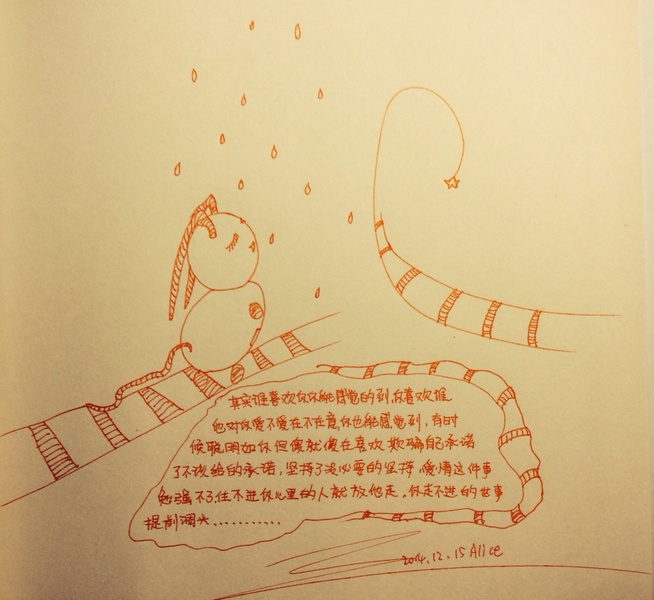 其实谁喜欢你你能感觉的到,你喜欢谁
他对你爱不爱在不在意,你也能感觉到,有时
候聪明如你但傻就傻在喜欢欺骗自己承诺
了不该给的承诺,坚持了没必要的坚持,爱情这件事
勉强不了住不进你心里的人就放他走.你走不进的世事
提前调头............
2014.12.15 Alice